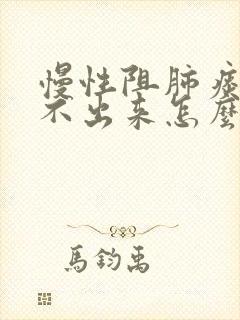 慢性阻肺痰
不出来怎麽
馬鈞禹